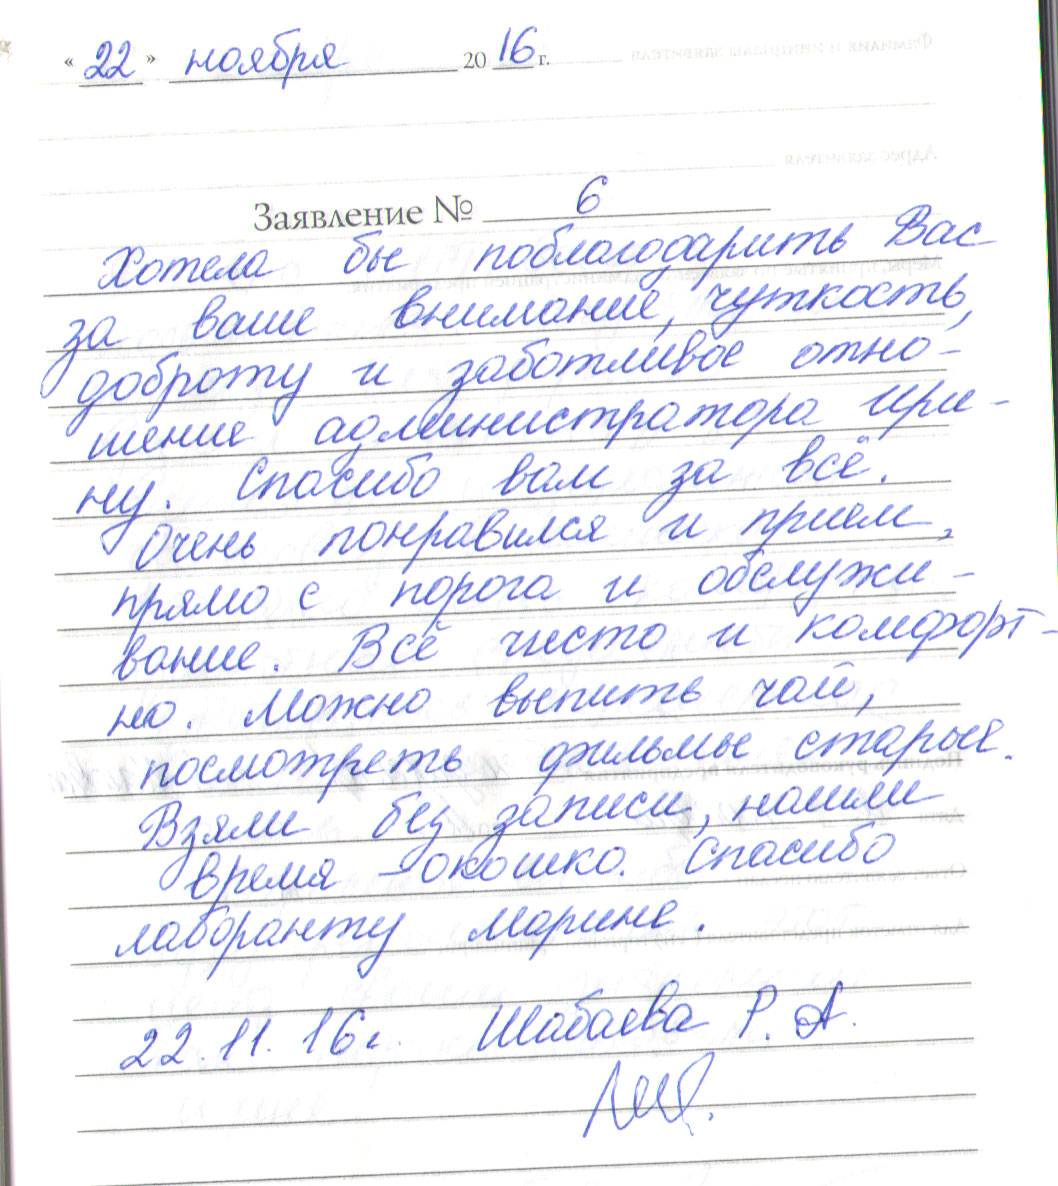 « 22 » ноября 2016 г.
Заявление № 6
Хотела бы поблагодарить Вас
за ваше внимание, чуткость,
доброту и заботливое отно-
шение администратора Ири-
ну. Спасибо вам за всё.
Очень понравился и прием,
прямо с порога и обслужи-
вание. Всё чисто и комфорт-
но. Можно выпить чай,
посмотреть фильмы старые.
Взяли без записи, нашли
время - окошко. Спасибо
лаборанту Марине.
22.11.16г. Шабаева Р. А.